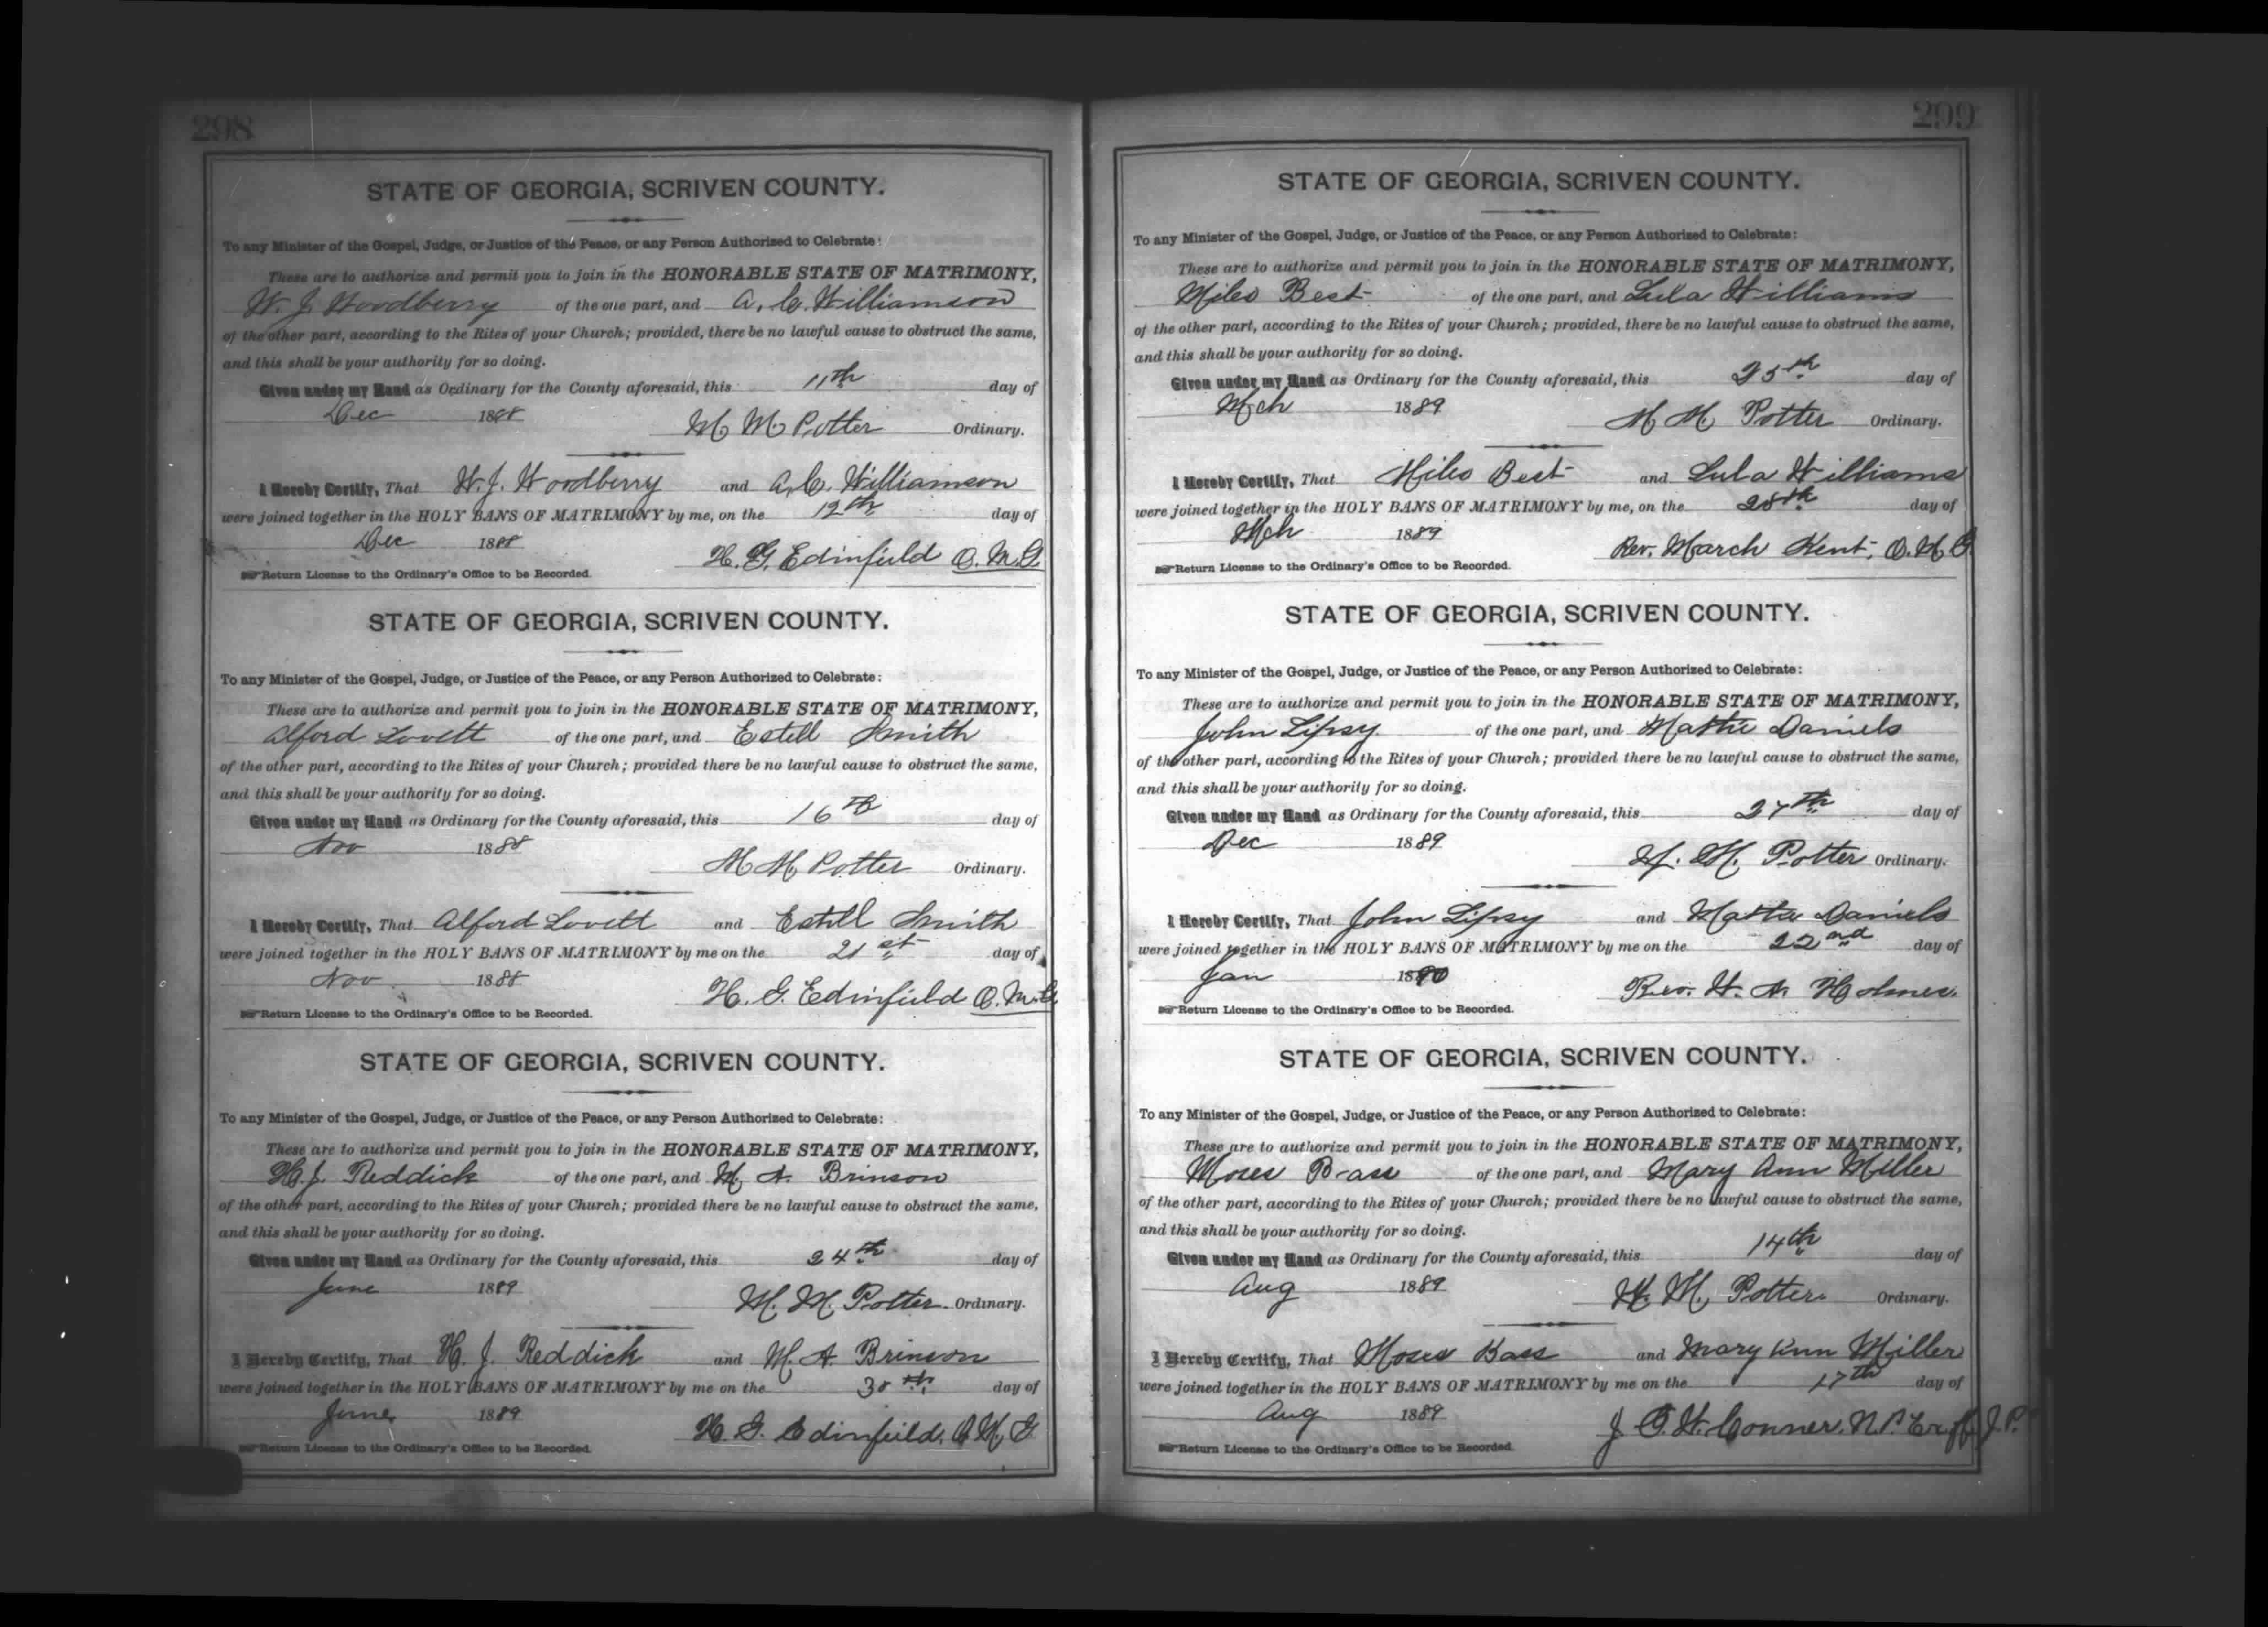 298
STATE OF GEORGIA, SCRIVEN COUNTY.
To any Minister of the Gospel, Judge, or Justice of the Peace, or any Person Authorized to Celebrate:
These are to authorize and permit you to join in the HONORABLE STATE OF MATRIMONY,
W. J. Woodberry of the one part, and A. C. Williamson
of the other part, according to the Rites of your Church; provided, there be no lawful cause to obstruct the same,
and this shall be your authority for so doing.
Given under my Hand as Ordinary for the County aforesaid, this 11th day of
Dec 1888 M M Potter Ordinary.
I Hereby Certify, That W. J. Woodberry and A. C. Williamson
were joined together in the HOLY BANS OF MATRIMONY by me, on the 12th day of
Dec 1888 H. G. Edinfield O. M. G.
Return License to the Ordinary's Office to be Recorded.
STATE OF GEORGIA, SCRIVEN COUNTY.
To any Minister of the Gospel, Judge, or Justice of the Peace, or any Person Authorized to Celebrate:
These are to authorize and permit you to join in the HONORABLE STATE OF MATRIMONY,
Alford Lovett of the one part, and Estell Smith
of the other part, according to the Rites of your Church; provided there be no lawful cause to obstruct the same,
and this shall be your authority for so doing.
Given under my Hand as Ordinary for the County aforesaid, this 16th day of
Nov 1888 M M Potter Ordinary.
I Hereby Certify, That Alford Lovett and Estell Smith
were joined together in the HOLY BANS OF MATRIMONY by me on the 21st day of
Nov 1888 H. G. Edinfield O. M. G.
Return License to the Ordinary's Office to be Recorded.
STATE OF GEORGIA, SCRIVEN COUNTY.
To any Minister of the Gospel, Judge, or Justice of the Peace, or any Person Authorized to Celebrate:
These are to authorize and permit you to join in the HONORABLE STATE OF MATRIMONY,
H. J. Reddick of the one part, and M. A. Brinson
of the other part, according to the Rites of your Church; provided there be no lawful cause to obstruct the same,
and this shall be your authority for so doing.
Given under my Hand as Ordinary for the County aforesaid, this 24th day of
June 1889 M. M. Potter Ordinary.
I Hereby Certify, That H. J. Reddick and M. A. Brinson
were joined together in the HOLY BANS OF MATRIMONY by me on the 30th day of
June 1889 H. G. Edinfield, O. M. G
Return License to the Ordinary's Office to be Recorded.
299
STATE OF GEORGIA, SCRIVEN COUNTY.
To any Minister of the Gospel, Judge, or Justice of the Peace, or any Person Authorized to Celebrate:
These are to authorize and permit you to join in the HONORABLE STATE OF MATRIMONY,
Miles Best of the one part, and Lula Williams
of the other part, according to the Rites of your Church; provided, there be no lawful cause to obstruct the same,
and this shall be your authority for so doing.
Given under my Hand as Ordinary for the County aforesaid, this 25th day of
Mch 1889 M M. Potter Ordinary.
I Hereby Certify, That Miles Best and Lula Williams
were joined together in the HOLY BANS OF MATRIMONY by me, on the 28th day of
Mch 1889 Rev. March Kent, O. M. G.
Return License to the Ordinary's Office to be Recorded.
STATE OF GEORGIA, SCRIVEN COUNTY.
To any Minister of the Gospel, Judge, or Justice of the Peace, or any Person Authorized to Celebrate:
These are to authorize and permit you to join in the HONORABLE STATE OF MATRIMONY,
John Lipsy of the one part, and Mattie Daniels
of the other part, according to the Rites of your Church; provided there be no lawful cause to obstruct the same,
and this shall be your authority for so doing.
Given under my Hand as Ordinary for the County aforesaid, this 27th day of
Dec 1889 M. M. Potter Ordinary.
I Hereby Certify, That John Lipsy and Mattie Daniels
were joined together in the HOLY BANS OF MATRIMONY by me on the 22nd day of
Jan 1890 Rev. H. A. Holmes.
Return License to the Ordinary's Office to be Recorded.
STATE OF GEORGIA, SCRIVEN COUNTY.
To any Minister of the Gospel, Judge, or Justice of the Peace, or any Person Authorized to Celebrate:
These are to authorize and permit you to join in the HONORABLE STATE OF MATRIMONY,
Moses Bass of the one part, and Mary Ann Miller
of the other part, according to the Rites of your Church; provided there be no lawful cause to obstruct the same,
and this shall be your authority for so doing.
Given under my Hand as Ordinary for the County aforesaid, this 14th day of
Aug 1889 M. M. Potter Ordinary.
I Hereby Certify, That Moses Bass and Mary Ann Miller
were joined together in the HOLY BANS OF MATRIMONY by me on the 17th day of
Aug 1889 J. O. H. Conner, N. P. J. P.
Return License to the Ordinary's Office to be Recorded.